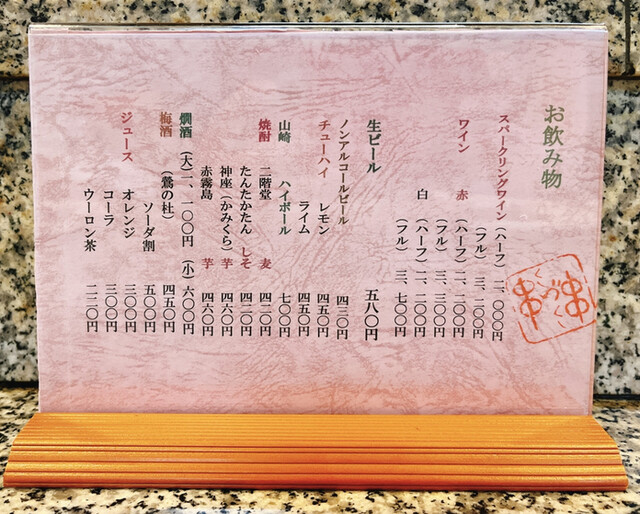 お飲み物
スパークリングワイン （ハーフ） 二、〇〇〇円
（フル） 三、二〇〇円
ワイン 赤 （ハーフ） 二、二〇〇円
（フル） 三、三〇〇円
白 （ハーフ） 二、二〇〇円
（フル） 三、七〇〇円
生ビール 五八〇円
ノンアルコールビール 四三〇円
チューハイ レモン 四五〇円
ライム 四五〇円
山崎 ハイボール 七〇〇円
焼酎 二階堂 麦 四二〇円
たんたかたん しそ 四二〇円
神座（かみくら） 芋 四六〇円
赤霧島 芋 四六〇円
燗酒 （大）一、一〇〇円 （小）六〇〇円
梅酒 （鶯の杜） 四五〇円
ソーダ割 五〇〇円
ジュース オレンジ 三〇〇円
コーラ 三〇〇円
ウーロン茶 二二〇円
串くづく串